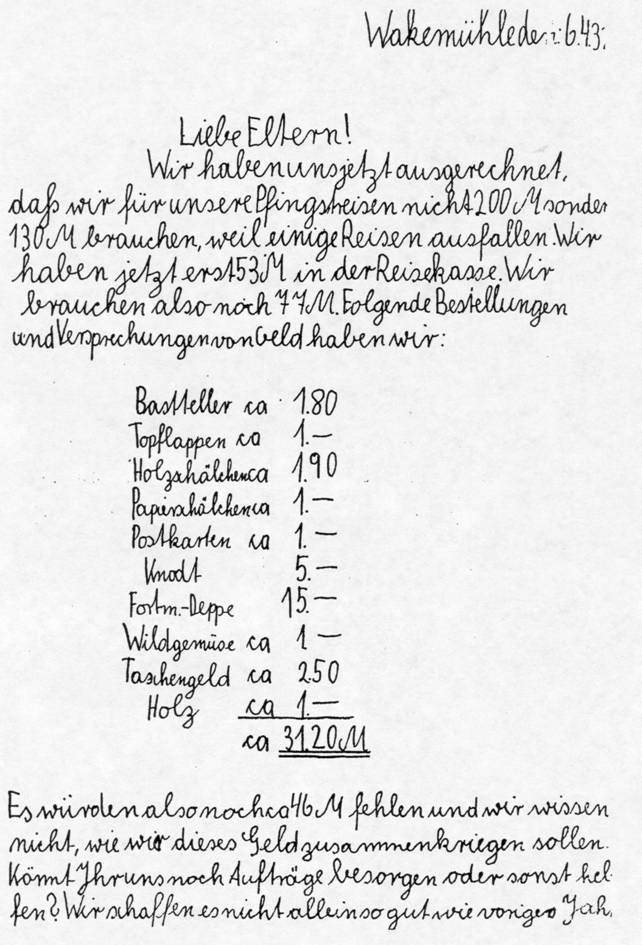 Wakemühle de 6.43.
Liebe Eltern!
Wir haben uns jetzt ausgerechnet,
daß wir für unsere Pfingstreisen nicht 200 M sonder
130 M brauchen, weil einige Reisen ausfallen. Wir
haben jetzt erst 53 M in der Reisekasse. Wir
brauchen also noch 77 M. Folgende Bestellungen
und Versprechungen von Geld haben wir:
Bastteller ca 1.80
Topflappen ca 1.—
Holzschälchen ca 1.90
Papierschälchen ca 1.—
Postkarten ca 1.—
Knodt 5.—
Fortm.-Deppe 15.—
Wildgemüse ca 1 —
Taschengeld ca 2.50
Holz ca 1.—
ca 31.20 M
Es würden also noch ca 46 M fehlen und wir wissen
nicht, wie wir dieses Geld zusammenkriegen sollen.
Könnt Ihr uns noch Aufträge besorgen oder sonst hel-
fen? Wir schaffen es nicht allein so gut wie voriges Jah.